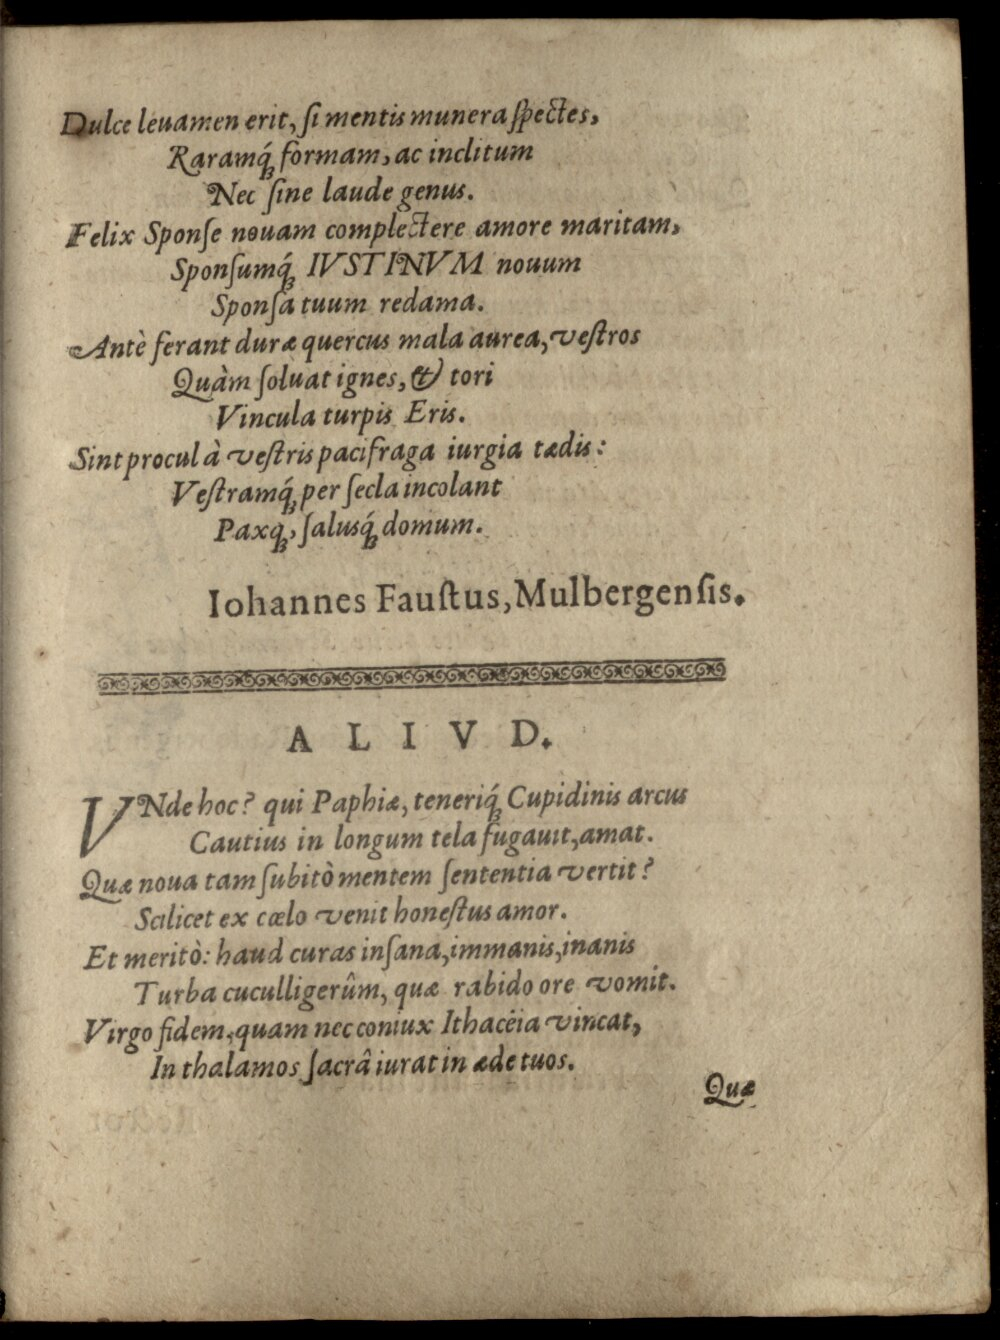 Dulce leuamen erit, ſi mentis munera ſpectes,
Raramq́; formam, ac inclitum
Nec ſine laude genus.
Felix Sponſe nouam complectere amore maritam,
Sponſumq́; IVSTINVM nouum
Sponſa tuum redama.
Antè ferant duræ quercus mala aurea, veſtros
Quàm ſoluat ignes, & tori
Vincula turpis Eris.
Sint procul à veſtris pacifraga iurgia tædis:
Veſtramq́; per ſecla incolant
Paxq́;, ſalusq́; domum.
Iohannes Fauſtus, Mulbergenſis.
ALIVD.
VNde hoc? qui Paphiæ, teneriq́; Cupidinis arcus
Cautius in longum tela fugauit, amat.
Quæ noua tam ſubitò mentem ſententia vertit?
Scilicet ex cœlo venit honeſtus amor.
Et meritò: haud curas inſana, immanis, inanis
Turba cuculligerûm, quæ rabido ore vomit.
Virgo fidem, quam nec coniux Ithacëia vincat,
In thalamos ſacrâ iurat in æde tuos.
Quæ